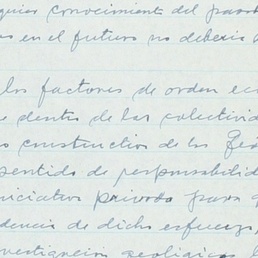 quier conocimiento del pasado
en el futuro no debería
los factores de orden ec
dentro de las colectivid
constructivo de los
sentido de responsabilidad
niciativa privada para
dencia de dicho esfuerzo,
vestigación geológica